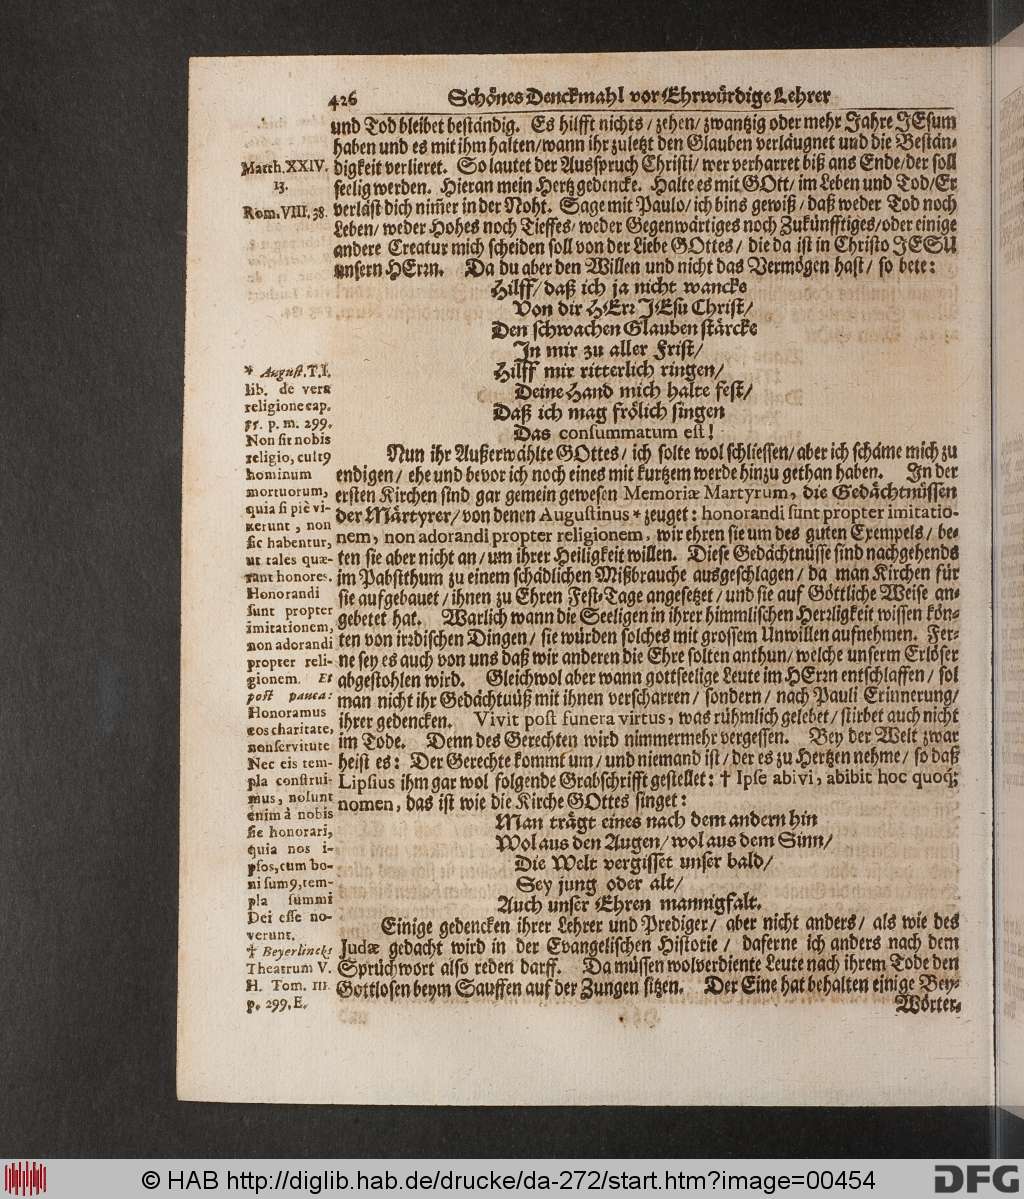 426 Schönes Denckmahl vor Ehrwürdige Lehrer
und Tod bleibet beständig. Es hilfft nichts / zehen / zwantzig oder mehr Jahre JEsum
haben und es mit ihm halten / wann ihr zuletzt den Glauben verläugnet und die Bestän-
digkeit verlieret. So lautet der Ausspruch Christi / wer verharret biß ans Ende / der soll
seelig werden. Hieran mein Hertz gedencke. Halte es mit GOtt / im Leben und Tod / Er
verläst dich nim̃er in der Noht. Sage mit Paulo / ich bins gewiß / daß weder Tod noch
Leben / weder Hohes noch Tieffes / weder Gegenwärtiges noch Zukünfftiges / oder einige
andere Creatur mich scheiden soll von der Liebe GOttes / die da ist in Christo JESU
unsern HErrn. Da du aber den Willen und nicht das Vermögen hast / so bete:
Hilff / daß ich ja nicht wancke
Von dir HErr JEsu Christ /
Den schwachen Glauben stärcke
In mir zu aller Frist /
Hilff mir ritterlich ringen /
Deine Hand mich halte fest /
Daß ich mag frölich singen
Das consummatum est!
Nun ihr Außerwählte GOttes / ich solte wol schliessen / aber ich schäme mich zu
endigen / ehe und bevor ich noch eines mit kurtzem werde hinzu gethan haben. In der
ersten Kirchen sind gar gemein gewesen Memoriæ Martyrum, die Gedächtnüssen
der Märtyrer / von denen Augustinus * zeuget: honorandi sunt propter imitatio-
nem, non adorandi propter religionem, wir ehren sie um des guten Exempels / be-
ten sie aber nicht an / um ihrer Heiligkeit willen. Diese Gedächtnüsse sind nachgehends
im Pabstthum zu einem schädlichen Mißbrauche ausgeschlagen / da man Kirchen für
sie aufgebauet / ihnen zu Ehren Fest-Tage angesetzet / und sie auf Göttliche Weise an-
gebetet hat. Warlich wann die Seeligen in ihrer himmlischen Herrligkeit wissen kön-
ten von irrdischen Dingen / sie würden solches mit grossem Unwillen aufnehmen. Fer-
ne sey es auch von uns daß wir anderen die Ehre solten anthun / welche unserm Erlöser
abgestohlen wird. Gleichwol aber wann gottseelige Leute im HErrn entschlaffen / sol
man nicht ihr Gedächtuüß mit ihnen verscharren / sondern / nach Pauli Erinnerung /
ihrer gedencken. Vivit post funera virtus, was rühmlich gelebet / stirbet auch nicht
im Tode. Denn des Gerechten wird nimmermehr vergessen. Bey der Welt zwar
heist es: Der Gerechte kommt um / und niemand ist / der es zu Hertzen nehme / so daß
Lipsius ihm gar wol folgende Grabschrifft gestellet: † Ipse abivi, abibit hoc quoq;
nomen, das ist wie die Kirche GOttes singet:
Man trägt eines nach dem andern hin
Wol aus den Augen / wol aus dem Sinn /
Die Welt vergisset unser bald /
Sey jung oder alt /
Auch unser Ehren mannigfalt.
Einige gedencken ihrer Lehrer und Prediger / aber nicht anders / als wie des
Judæ gedacht wird in der Evangelischen Historie / daferne ich anders nach dem
Sprüchwort also reden darff. Da müssen wolverdiente Leute nach ihrem Tode den
Gottlosen beym Sauffen auf der Zungen sitzen. Der Eine hat behalten einige Bey-
Wörter-
Matth. XXIV.
13.
Rom. VIII, 38.
* August. T. I.
lib. de vera
religione cap.
55. p. m. 299.
Non sit nobis
religio, cult9
hominum
mortuorum,
quia si piè vi-
xerunt, non
sic habentur,
ut tales quæ-
rant honores.
Honorandi
sunt propter
imitationem,
non adorandi
propter reli-
gionem. Et
post pauca:
Honoramus
eos charitate,
non servitute
Nec eis tem-
pla construi-
mus, nolunt
enim à nobis
sic honorari,
quia nos i-
psos, cum bo-
ni sum9, tem-
pla summi
Dei esse no-
verunt.
† Beyerlincks
Theatrum V.
H. Tom. III.
p. 299. E.
© HAB http://diglib.hab.de/drucke/da-272/start.htm?image=00454
DFG